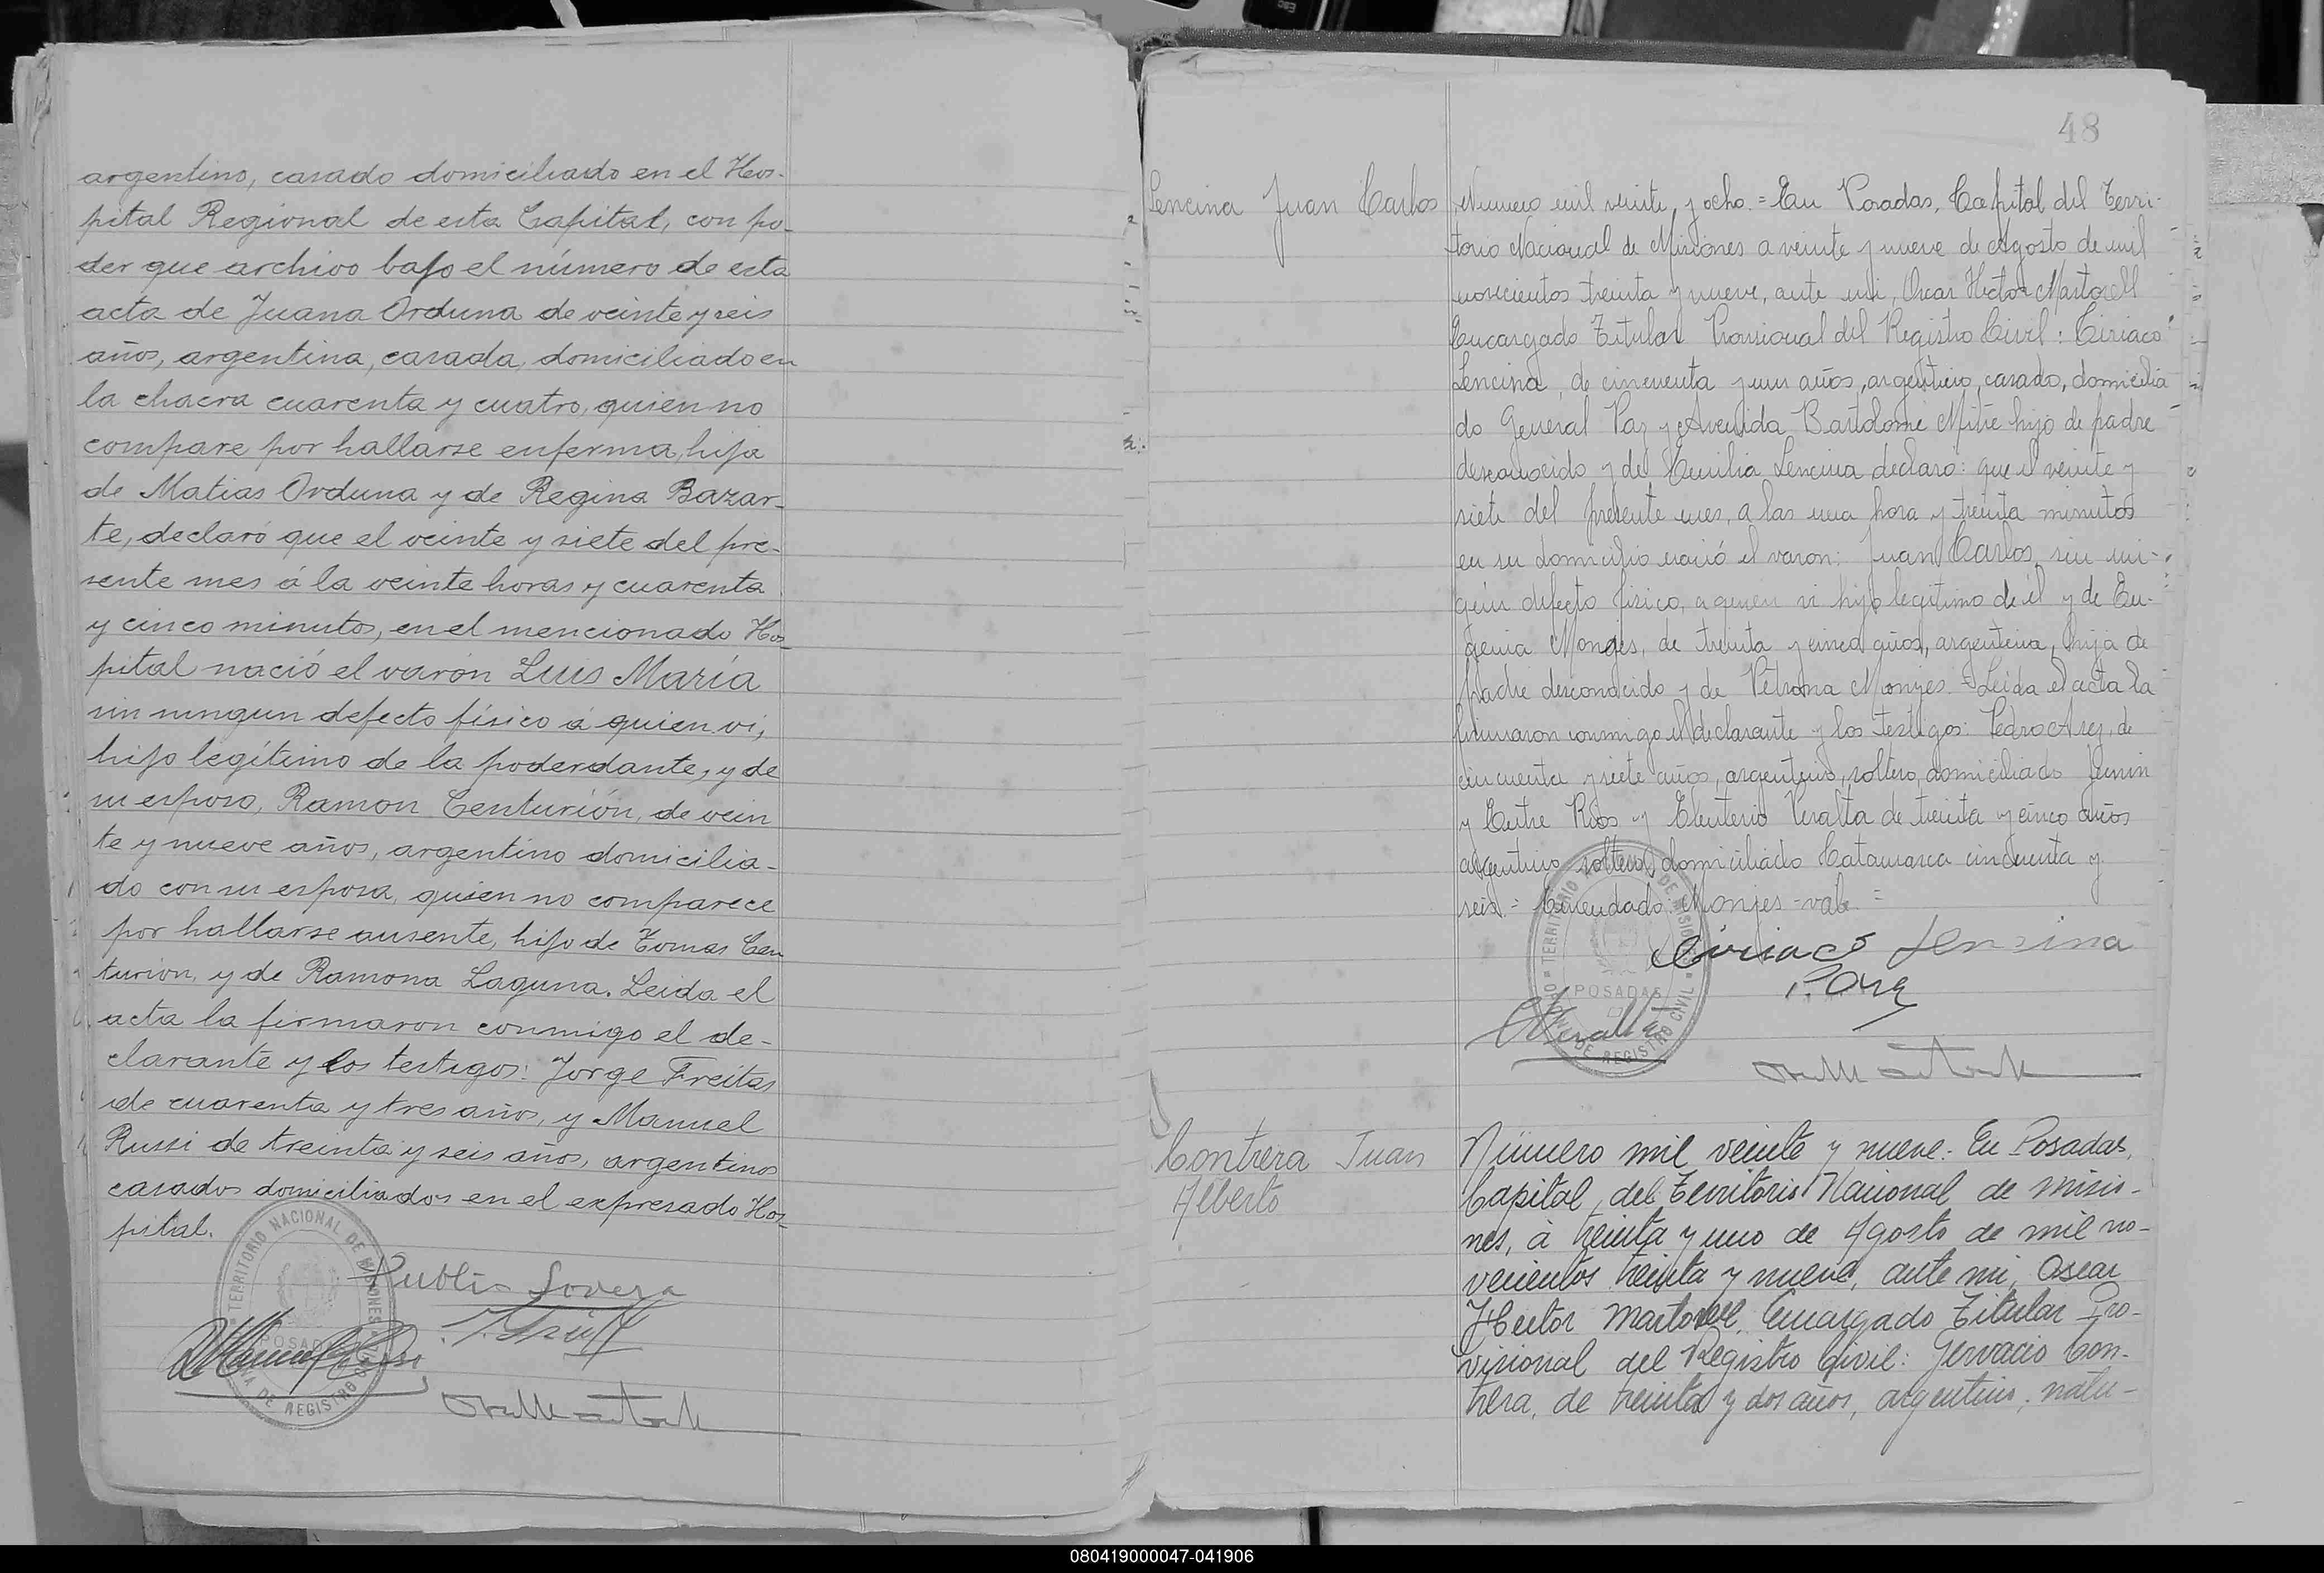 argentino, casado domiciliado en el Hos-
pital Regional de esta Capital, con po-
der que archivo bajo el número de esta
acta de Juana Orduna de veinte y seis
años, argentina, casada, domiciliado en
la chacra cuarenta y cuatro, quien no
compare por hallarse enferma, hija
de Matias Orduna y de Regina Bazar-
te, declaró que el veinte y siete del pre-
sente mes á la veinte horas y cuarenta
y cinco minutos, en el mencionado Hos-
pital nació el varón Luis María
sin ningun defecto físico á quien vi,
hijo legítimo de la poderdante, y de
su esposo, Ramon Centurión, de vein
te y nueve años, argentino domicilia-
do con su esposa, quien no comparece
por hallarse ausente, hijo de Tomas Cen
turion, y de Ramona Laguna. Leida el
acta la firmaron conmigo el de-
clarante y los testigos: Jorge Freitas
de cuarenta y tres años, y Manuel
Russi de treinta y seis años, argentinos
casados domiciliados en el expresado Hos-
pital.
TERRITORIO NACIONAL DE MISIONES
POSADAS
DE REGISTRO CIVIL
48
Lencina Juan Carlos
Numero mil veinte y ocho.= En Posadas, Capital del Terri-
torio Nacional de Misiones a veinte y nueve de Agosto de mil
novecientos treinta y nueve, ante mi, Oscar Hector Martorell
Encargado Titular Provisional del Registro Civil: Ciriaco
Lencina, de cincuenta y un años, argentino, casado, domicilia
do General Paz y Avenida Bartolome Mitre hijo de padre
desconocido y de Emilia Lencina declaro: que el veinte y
siete del presente mes, a las una hora y treinta minutos
en su domicilio nació el varon: Juan Carlos, sin nin-
gún defecto fisico, a quien vi hijo legitimo de él y de Eu-
genia Monges, de treinta y cinco años, argentina, hija de
padre desconocido y de Petrona Monjes.= Leida el acta la
firmaron conmigo el declarante y los testigos: Pedro Arez, de
cincuenta y siete años, argentino, soltero, domiciliado Junin
y Entre Rios y Eleuterio Peralta de treinta y cinco años
argentino soltero, domiciliado Catamarca cincuenta y
seis.= Enmendado: Monjes -vale=
Ciriaco Lencina
TERRITORIO DE MISIONES
POSADAS
DE REGISTRO CIVIL
Contrera Juan
Alberto
Número mil veinte y nueve.- En Posadas,
Capital del Territorio Nacional de Misio-
nes, à treinta y uno de Agosto de mil no-
vecientos treinta y nueve, ante mi, Oscar
Hector Martorell, Encargado Titular Pro-
visional del Registro Civil: Gervacio Con-
trera, de treinta y dos años, argentino, natu-
080419000047-041906